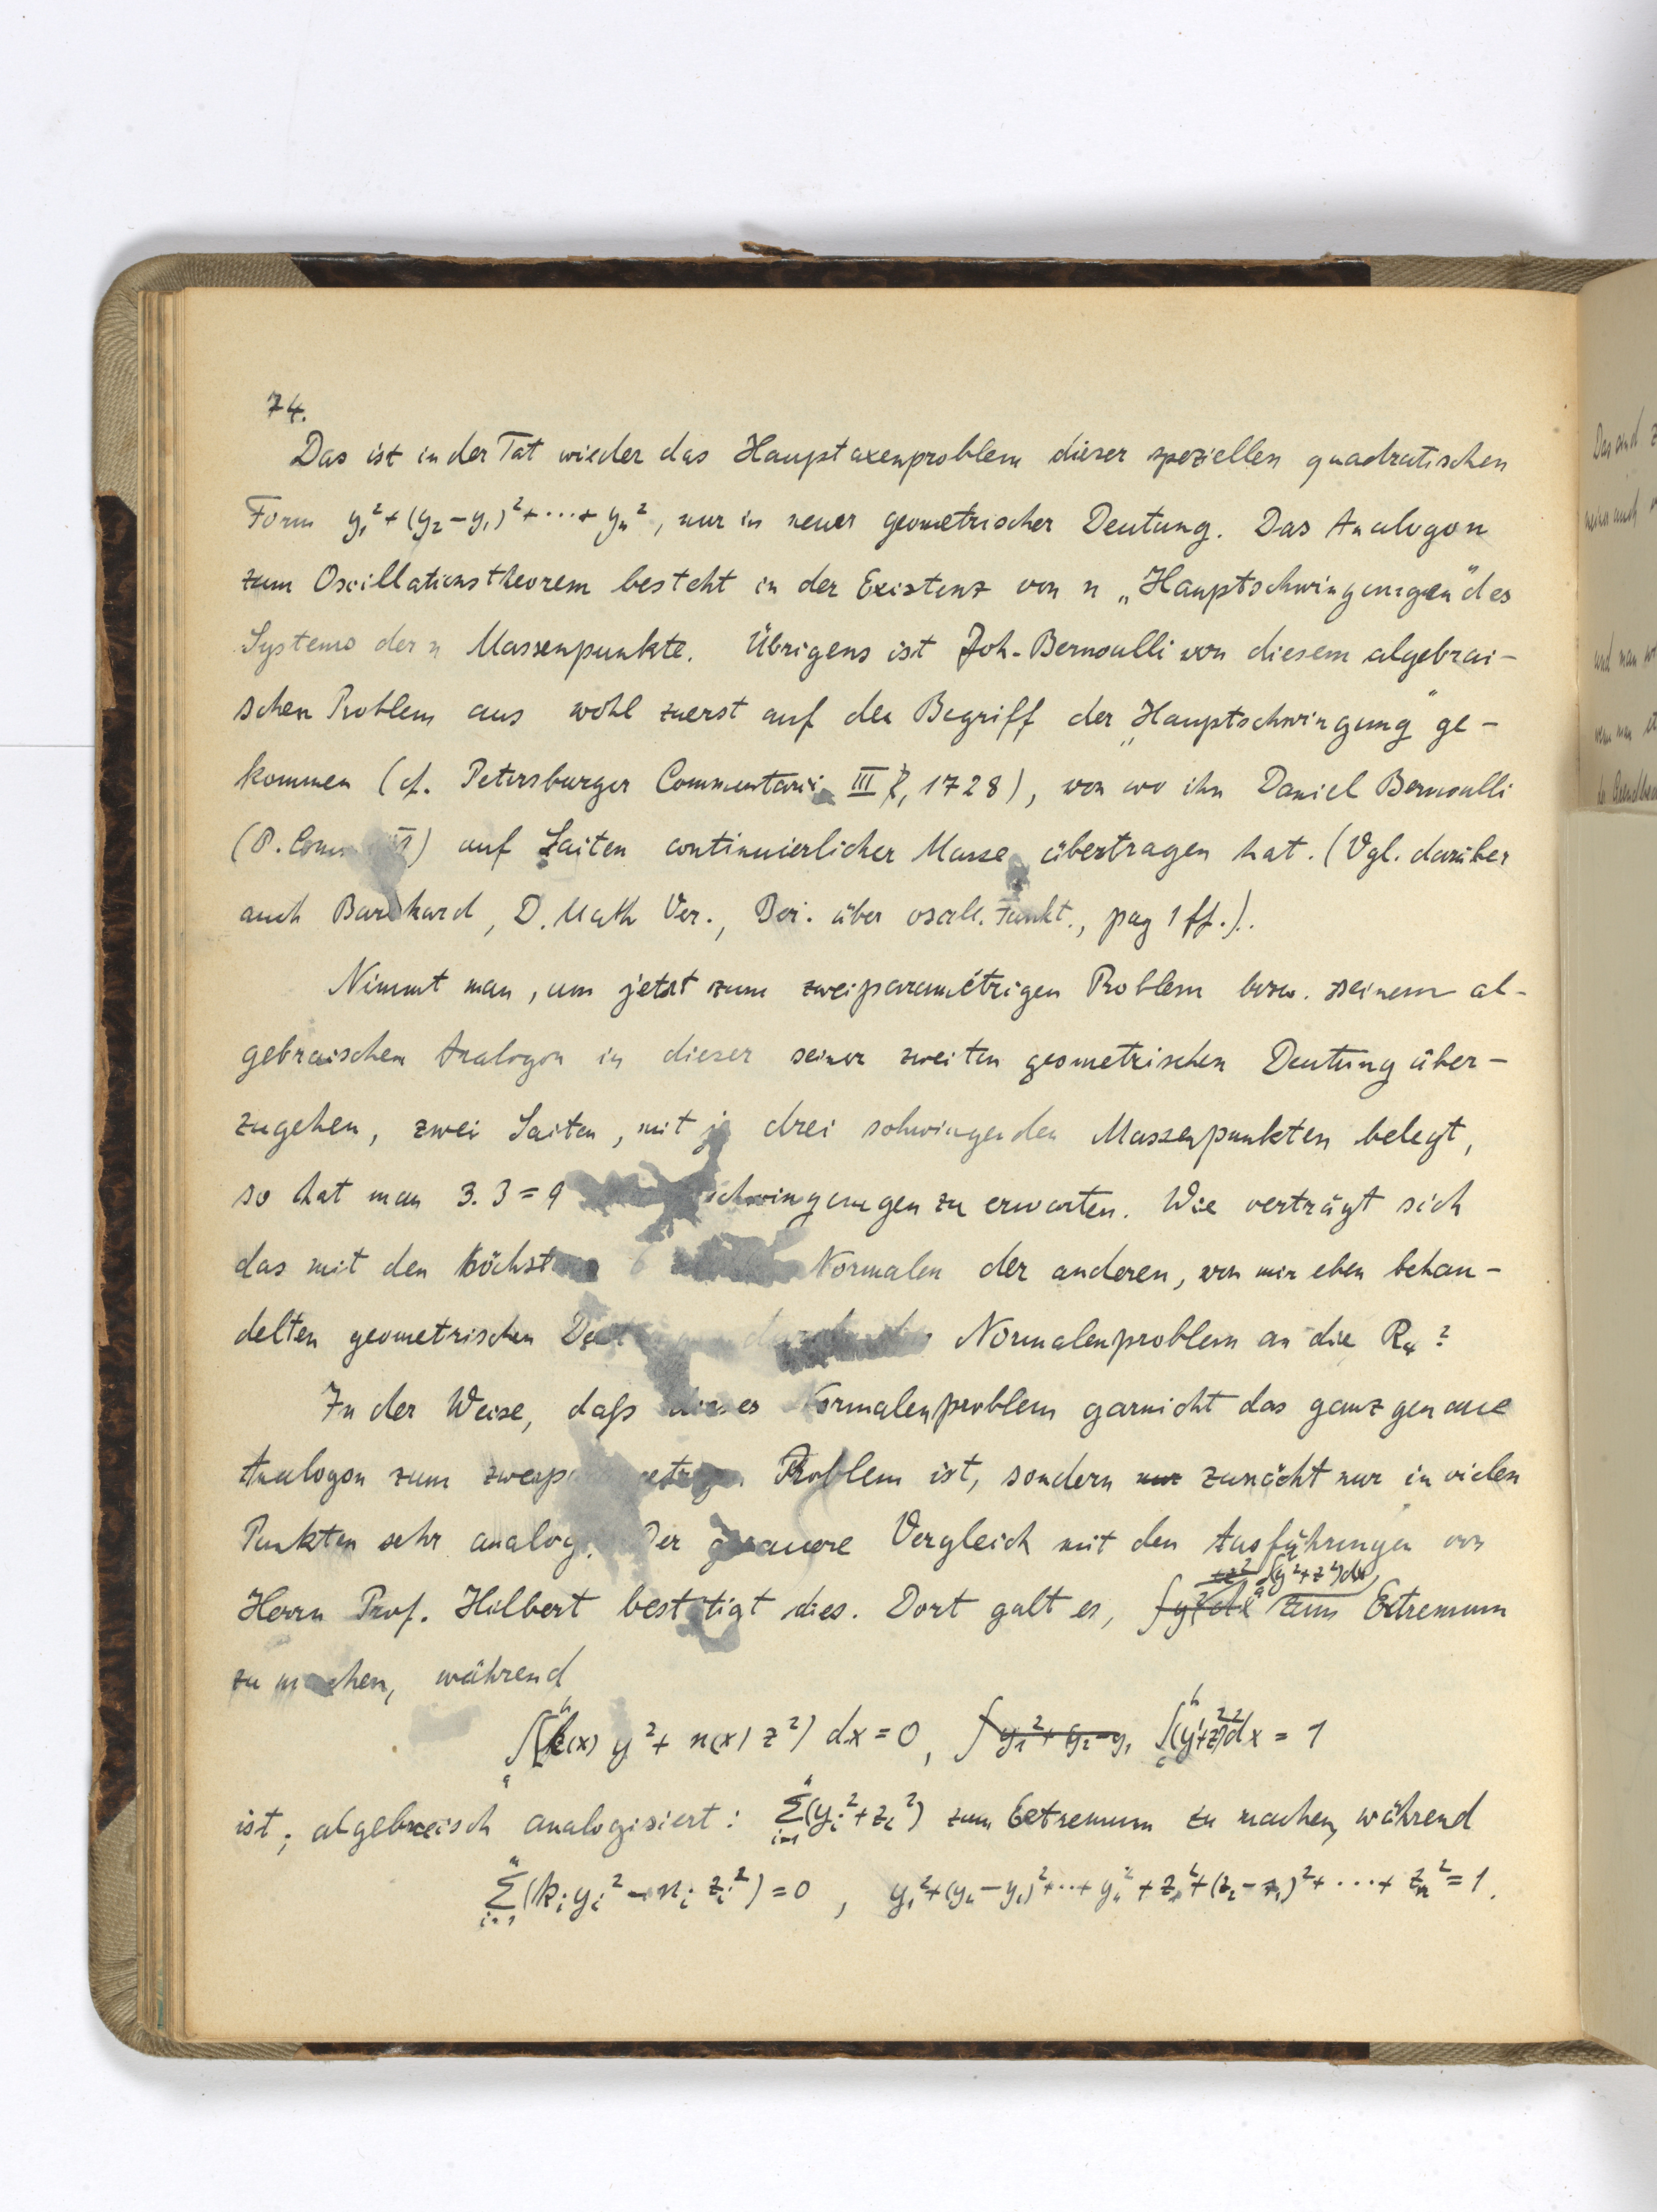 74.
Das ist in der Tat wieder das Hauptaxenproblem dieser speziellen quadratischen
Form y₁²+(y₂−y₁)²+⋯+yₙ², nur in neuer geometrischer Deutung. Das Analogon
zum Oscillationstheorem besteht in der Existenz von n „Hauptschwingungen" des
Systems der n Massenpunkte. Übrigens ist Joh. Bernoulli von diesem algebrai-
schen Problem aus wohl zuerst auf den Begriff der „Hauptschwingung" ge-
kommen (cf. Petersburger Commentarii III, 1728), von wo ihn Daniel Bernoulli
(P. Comm. ) auf Saiten continuierlicher Masse übertragen hat. (Vgl. darüber
auch Burkhard, D. Math Ver., Ber. über oscill. Funkt., pag 1 ff.).
Nimmt man, um jetzt zum zweiparametrigen Problem bezw. seinem al-
gebraischen Analogon in dieser seiner zweiten geometrischen Deutung über-
zugehen, zwei Saiten, mit je drei schwingenden Massenpunkten belegt,
so hat man 3.3=9 schwingungen zu erwarten. Wie verträgt sich
das mit den höchstens 6 Normalen der anderen, von mir eben behan-
delten geometrischen Deutung durch das Normalenproblem an die R₄?
In der Weise, daß dieses Normalenproblem garnicht das ganz genaue
Analogon zum zweiparametrigen Problem ist, sondern nur zunächt nur in vielen
Punkten sehr analog. Der genauere Vergleich mit den Ausführungen von
Herrn Prof. Hilbert bestätigt dies. Dort galt es, ∫(y²+z²)dx zum Extremum
zu machen, während
∫ₐᵇ(k(x) y²+n(x) z²) dx=0, ∫y₁²+y₂−y₁ ∫ₐᵇ(y'²+z'²)dx = 1
ist; algebraisch analogisiert: Σᵢ₌₁ⁿ(yᵢ²+zᵢ²) zum Extremum zu machen, während
Σᵢ₌₁ⁿ(kᵢyᵢ²−nᵢzᵢ²)=0, y₁²+(y₂−y₁)²+⋯+yₙ²+z₁²+(z₂−z₁)²+⋯+zₙ²=1.